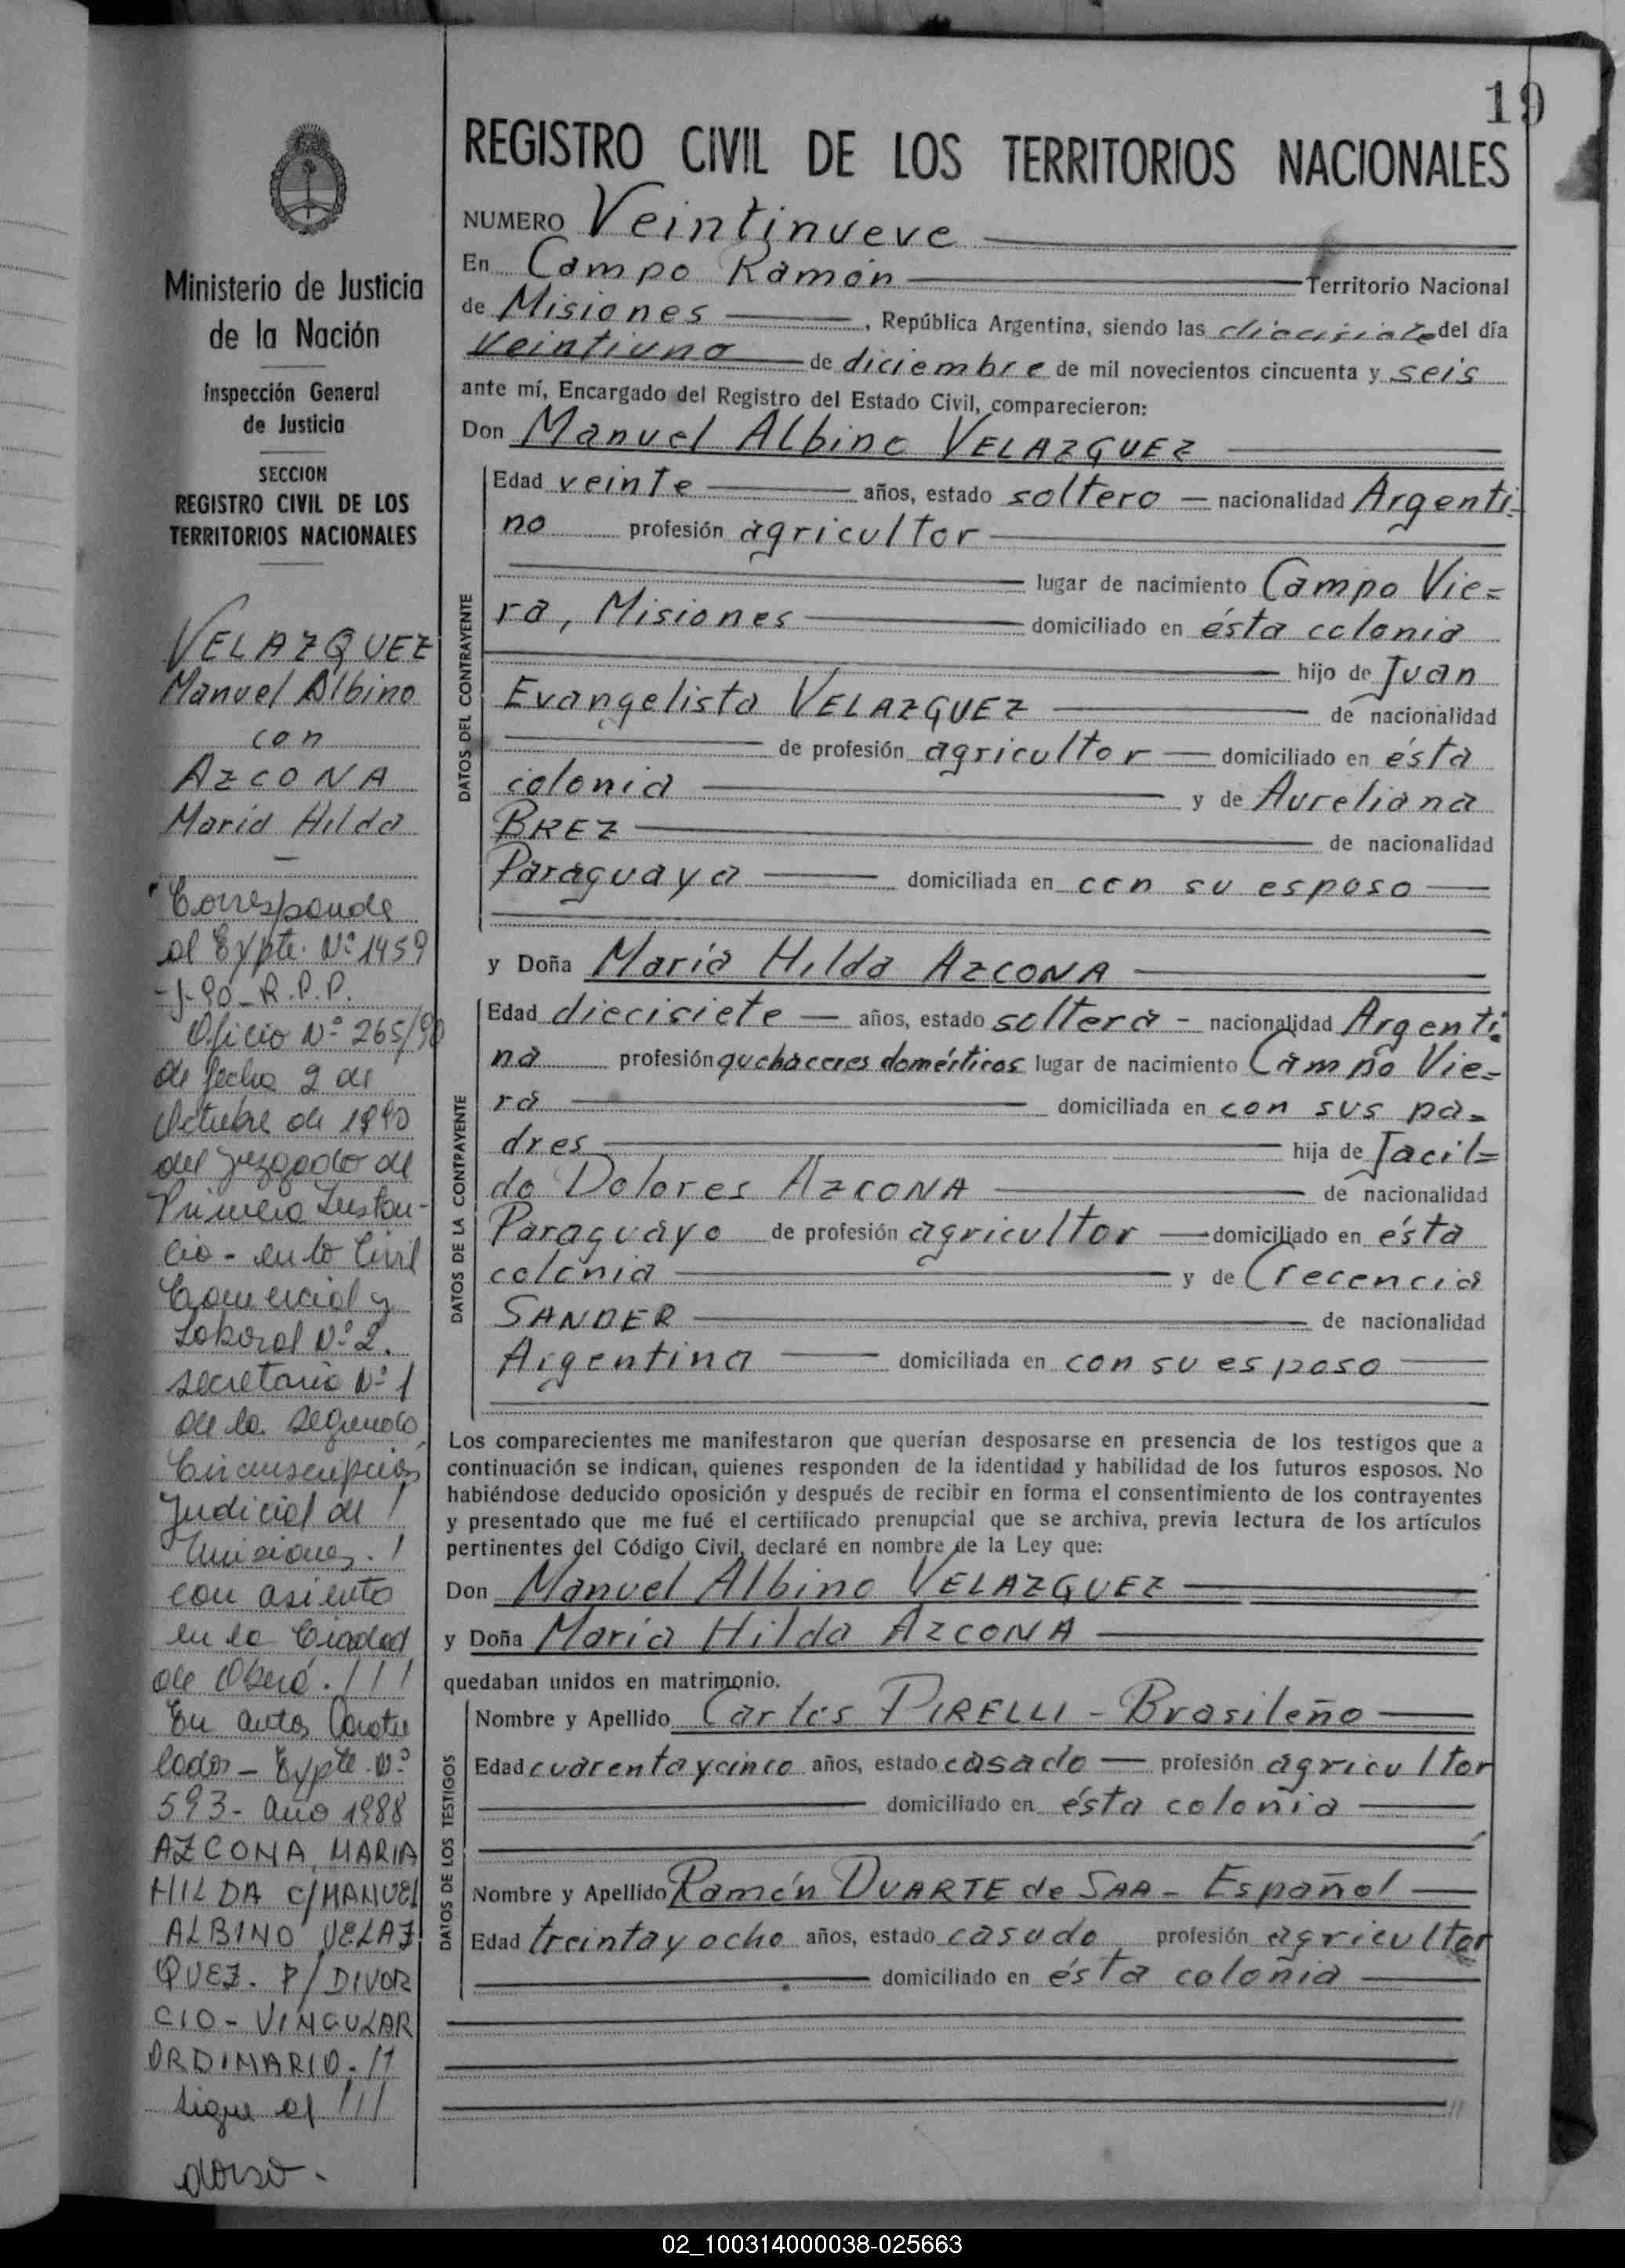 19
REGISTRO CIVIL DE LOS TERRITORIOS NACIONALES
NUMERO Veintinueve
En Campo Ramón Territorio Nacional
de Misiones , República Argentina, siendo las diecisiete del día
Veintiuno de diciembre de mil novecientos cincuenta y seis
ante mí, Encargado del Registro del Estado Civil, comparecieron:
Don Manuel Albino VELAZQUEZ
DATOS DEL CONTRAYENTE
Edad veinte años, estado soltero - nacionalidad Argenti-
no profesión agricultor
lugar de nacimiento Campo Vie=
ra, Misiones domiciliado en ésta colonia
hijo de Juan
Evangelista VELAZQUEZ de nacionalidad
de profesión agricultor domiciliado en ésta
colonia y de Aureliana
BREZ de nacionalidad
Paraguaya domiciliada en con su esposo
y Doña María Hilda AZCONA
DATOS DE LA CONTRAYENTE
Edad diecisiete años, estado soltera - nacionalidad Argenti
na profesión quehaceres domésticos lugar de nacimiento Campo Vie=
ra domiciliada en con sus pa=
dres hija de Jacil=
do Dolores AZCONA de nacionalidad
Paraguayo de profesión agricultor domiciliado en ésta
colonia y de Crecencia
SANDER de nacionalidad
Argentina domiciliada en con su esposo
Los comparecientes me manifestaron que querían desposarse en presencia de los testigos que a
continuación se indican, quienes responden de la identidad y habilidad de los futuros esposos. No
habiéndose deducido oposición y después de recibir en forma el consentimiento de los contrayentes
y presentado que me fué el certificado prenupcial que se archiva, previa lectura de los artículos
pertinentes del Código Civil, declaré en nombre de la Ley que:
Don Manuel Albino VELAZQUEZ
y Doña María Hilda AZCONA
quedaban unidos en matrimonio.
DATOS DE LOS TESTIGOS
Nombre y Apellido Carlos PIRELLI - Brasileño
Edad cuarenta y cinco años, estado casado profesión agricultor
domiciliado en ésta colonia
Nombre y Apellido Ramón DUARTE de SAA - Español
Edad treinta y ocho años, estado casado profesión agricultor
domiciliado en ésta colonia
Ministerio de Justicia
de la Nación
Inspección General
de Justicia
SECCION
REGISTRO CIVIL DE LOS
TERRITORIOS NACIONALES
VELAZQUEZ
Manuel Albino
con
AZCONA
María Hilda
Corresponde
al Expte. Nº 1459
-J-90-R.P.P.
Oficio Nº 265/90
de fecha 2 de
Octubre de 1990
del Juzgado de
Primera Instan-
cia - en lo Civil
Comercial y
Laboral Nº 2.
secretaria Nº 1
de la segunda
Circunscripción
Judicial de
Misiones. /
con asiento
en la Ciudad
de Oberá. ///
En autos Caratu
lados - Expte. Nº
593- año 1988
AZCONA, MARIA
HILDA C/MANUEL
ALBINO VELAZ
QUEZ. P/DIVOR
CIO - VINCULAR
ORDINARIO. //
sigue al ///
dorso -
02_100314000038-025663